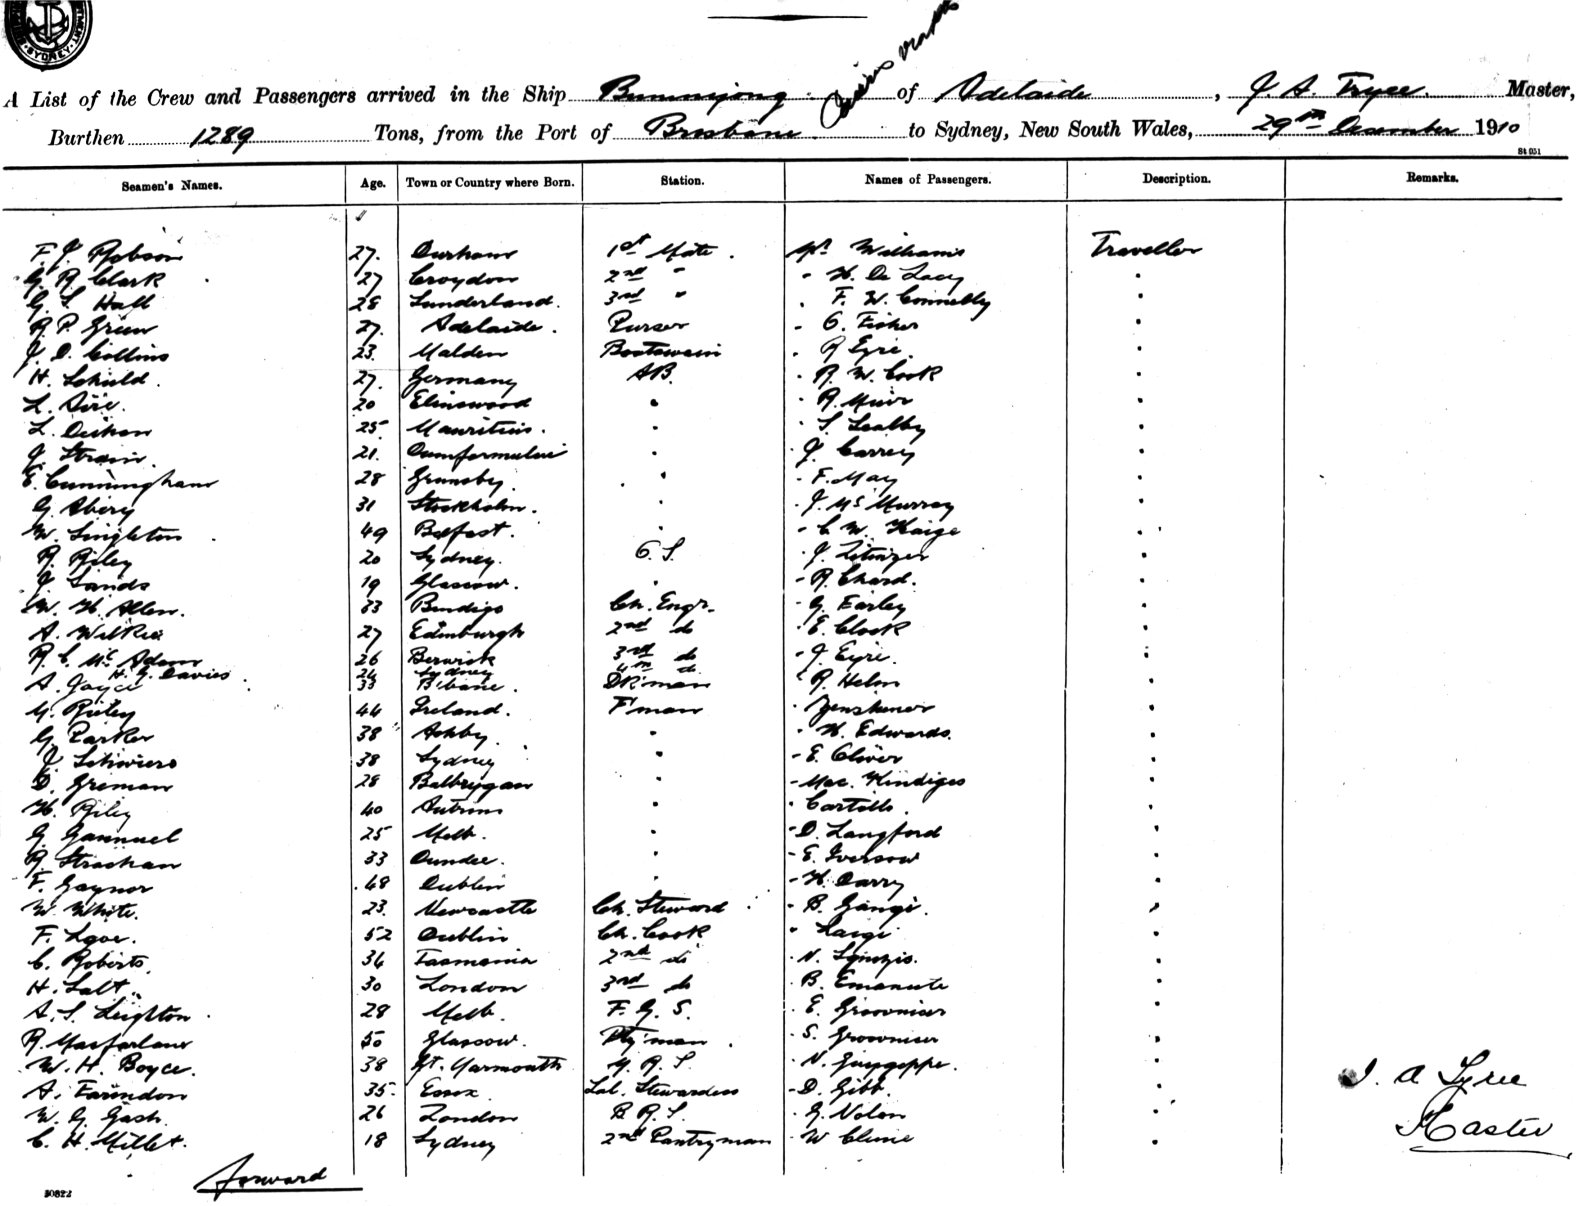 SYDNEY
A List of the Crew and Passengers arrived in the Ship Buninyong of Adelaide, J. A. Tyree Master,
Burthen 1289 Tons, from the Port of Brisbane to Sydney, New South Wales, 29th December 1910
St 051
Seamen's Names. Age. Town or Country where Born. Station. Names of Passengers. Description. Remarks.
F. J. Robson 27. Durham 1st Mate. Mr Williams Traveller
G. R. Clark 27 Croydon 2nd " " H. De Lacy "
G. S. Hall 28 Sunderland. 3rd " " F. W. Connelly "
R. P. Green 27. Adelaide. Purser " C. Fisher "
J. D. Collins 23. Malden Boatswain " R Eyre "
H. Schuld. 27. Germany AB. " R. W. Cook "
L. 20 Elmswood " " R. Muir "
L. 25 Mauritius. " " S. Scalby "
J. Strain. 21. " " J. Carrey "
E. Cunningham 28 Grimsby. " " F. May "
G. Abery 31 Stockholm. " " J. McMurray "
W. Singleton 49 Belfast. " " C. W. Haige "
R. Riley 20 Sydney. O. S. " J. "
J. Sands 19 Glasgow. " " R. Chard. "
W. H. Allen. 33 Bendigo Ch. Engr. " G. Farley "
A. Wilkie 27 Edinburgh 2nd do " E. Clook "
R. C. McAdam 26 Berwick 3rd do " J. Eyre. "
H. G. Davies 24 Sydney 4th do
A. Joyce 33 B'bane. DKman " R. Helm "
M. Rieley 44 Ireland. F'man " "
G. Parker 38 Ashby. " " H. Edwards. "
J. Schwiers 38 Sydney " " E. Oliver "
D. Greman 28 Balbrygan " " Mac. Kindiges "
H. Riley 40 Antrim " " Castello. "
G. Gammuel 25 Melb. " " D. Langford "
R. Strachan 33 Dundee. " " E. Iverson "
F. Gaynor 48 Dublin " " H. Darry "
W. White. 23. Newcastle Ch. Steward " B. Gangi. "
F. 52 Dublin Ch. Cook " Luigi "
C. Roberts. 34 Tasmania 2nd do " N. "
H. Salt. 30 London 3rd do " B. Emanute "
A. S. Leighton 28 Melb. F. G. S. " E. "
R. Macfarlane 50 Glasgow. P'tryman. " S. "
W. H. Boyce. 38 Gt. Yarmouth M. R. S " N. "
A. Farindon 35. Essex. Sal. Stewardess " D. Gibb. "
W. G. Gash. 26 London B R. S. " G. Nolan "
C. H. Millet. 18 Sydney 2nd Pantryman " W Clune "
J. A Tyree
Master
forward
50822